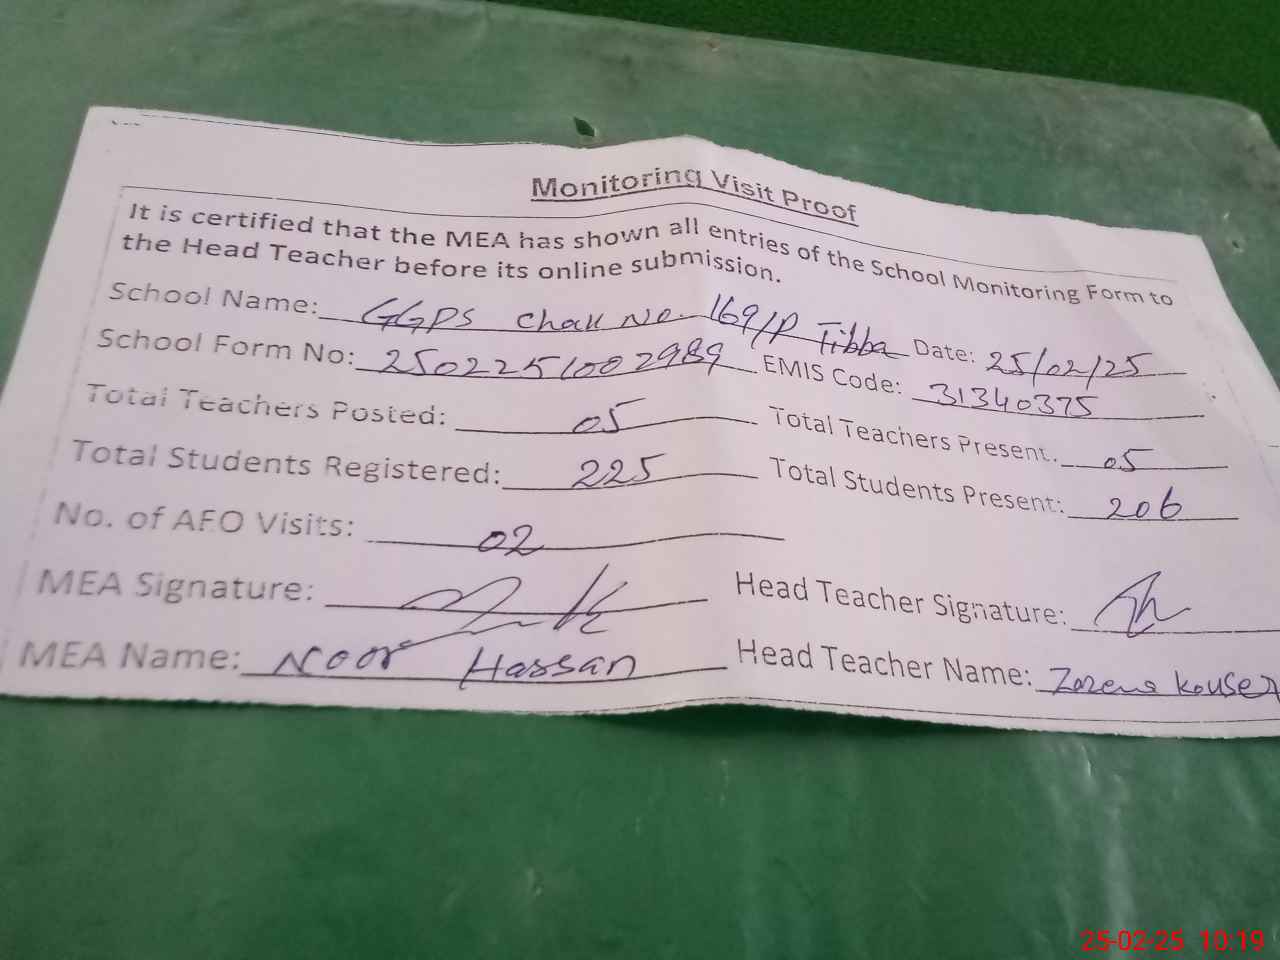 Monitoring Visit Proof
It is certified that the MEA has shown all entries of the School Monitoring Form to
the Head Teacher before its online submission.
School Name: GGPS Chak No. 169/P Tibba Date: 25/02/25
School Form No: 2502251002989 EMIS Code: 31340375
Total Teachers Posted: 05 Total Teachers Present. 05
Total Students Registered: 225 Total Students Present: 206
No. of AFO Visits: 02
MEA Signature: Head Teacher Signature:
MEA Name: Noor Hassan Head Teacher Name: Zareena Kouser
25-02-25 10:19